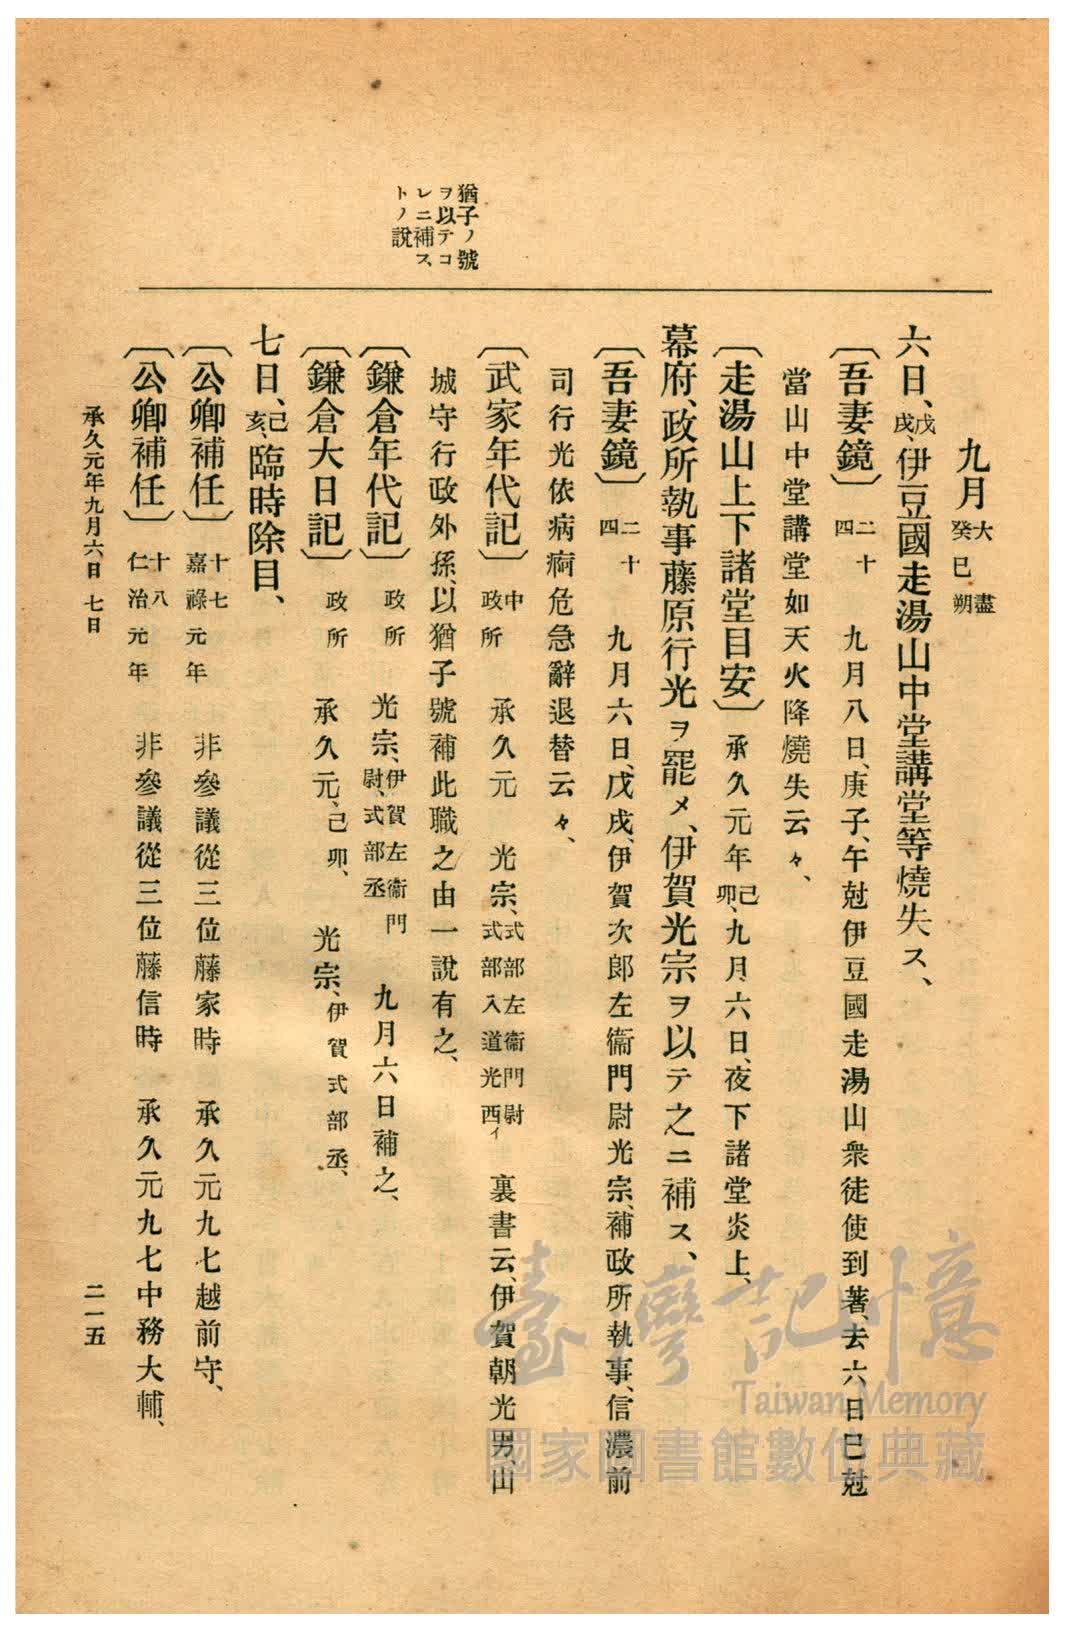 猶子ノ號
ヲ以テコ
レニ補ス、
トノ說
九月大盡癸巳朔
六日、戊戌、伊豆國走湯山中堂講堂等燒失ス、
〔吾妻鏡〕二十四 九月八日、庚子、午尅伊豆國走湯山衆徒使到著、去六日巳尅
當山中堂講堂如天火降燒失云々、
〔走湯山上下諸堂目安〕承久元年己卯、九月六日、夜下諸堂炎上、
幕府、政所執事藤原行光ヲ罷メ、伊賀光宗ヲ以テ之ニ補ス、
〔吾妻鏡〕二十四 九月六日、戊戌、伊賀次郎左衞門尉光宗、補政所執事、信濃前
司行光依病痾危急辭退替云々、
〔武家年代記〕中政所 承久元 光宗、式部左衞門尉式部入道光西イ 裏書云、伊賀朝光男、山
城守行政外孫、以猶子號補此職之由一說有之、
〔鎌倉年代記〕政所 光宗、伊賀左衞門尉、式部丞 九月六日補之、
〔鎌倉大日記〕政所 承久元、己卯、 光宗、伊賀式部丞、
七日、己亥、臨時除目、
〔公卿補任〕十七嘉祿元年 非參議從三位藤家時 承久元九七越前守、
〔公卿補任〕十八仁治元年 非參議從三位藤信時 承久元九七中務大輔、
承久元年九月六日 七日
二一五
臺灣記憶
Taiwan Memory
國家圖書館數位典藏